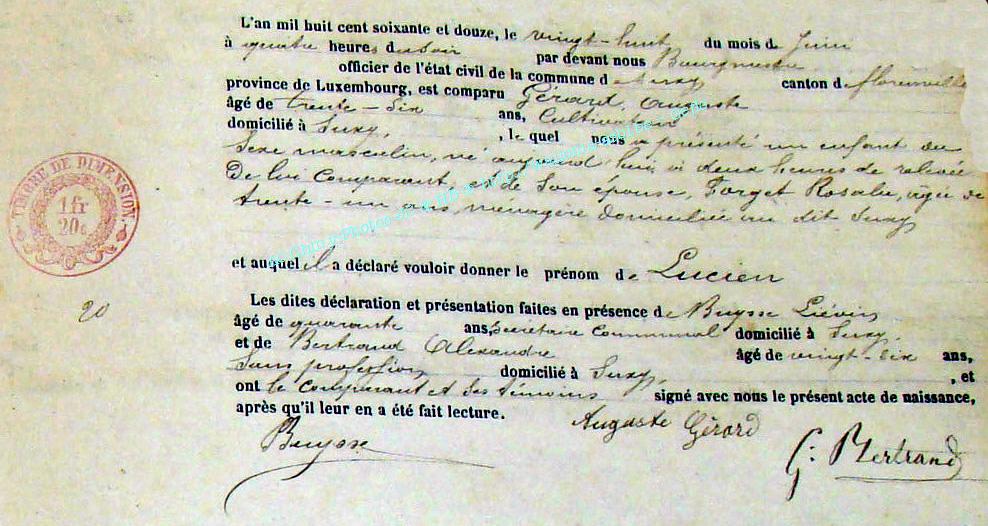 L'an mil huit cent soixante et douze, le vingt-huit du mois de Juin
à quatre heures du soir par devant nous Bourgmestre
officier de l'état civil de la commune de Suxy canton de florenville
province de Luxembourg, est comparu Gérard, Auguste
âgé de trente-six ans, Cultivateur
domicilié à Suxy, , le quel nous a présenté un enfant du
Sexe masculin, né aujourd'hui, à deux heures de relevée
De lui Comparant, et de Son épouse, Forget Rosalie, agée de
trente-un ans, ménagère domiciliée au dit Suxy
et auquel il a déclaré vouloir donner le prénom de Lucien
Les dites déclaration et présentation faites en présence de Buysse Liévin
âgé de quarante ans, Secrétaire Communal domicilié à Suxy,
et de Bertrand Alexandre âgé de vingt-six ans,
Sans profession domicilié à Suxy, , et
ont le comparant et les témoins signé avec nous le présent acte de naissance,
après qu'il leur en a été fait lecture.
Auguste Gérard
Buysse
G. Bertrand
TIMBRE DE DIMENSION.
1 fr
20 c
20